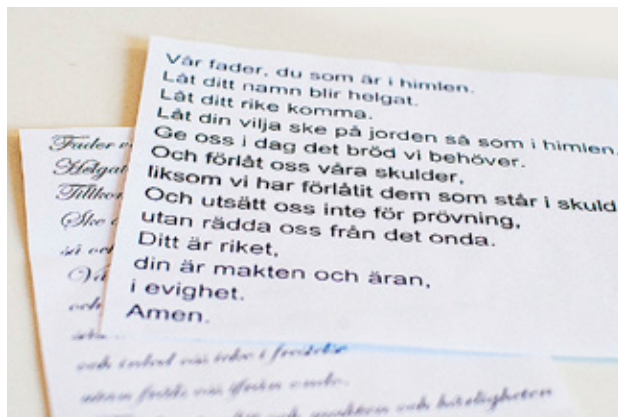 Vår fader, du som är i himlen.
Låt ditt namn blir helgat.
Låt ditt rike komma.
Låt din vilja ske på jorden så som i himlen.
Ge oss i dag det bröd vi behöver.
Och förlåt oss våra skulder,
liksom vi har förlåtit dem som står i skuld
Och utsätt oss inte för prövning,
utan rädda oss från det onda.
Ditt är riket,
din är makten och äran,
i evighet.
Amen.
Fader
Helgat
Ske
så och
och
och inled oss icke i frestelse
utan fräls oss ifrån ondo.
och makten och härligheten